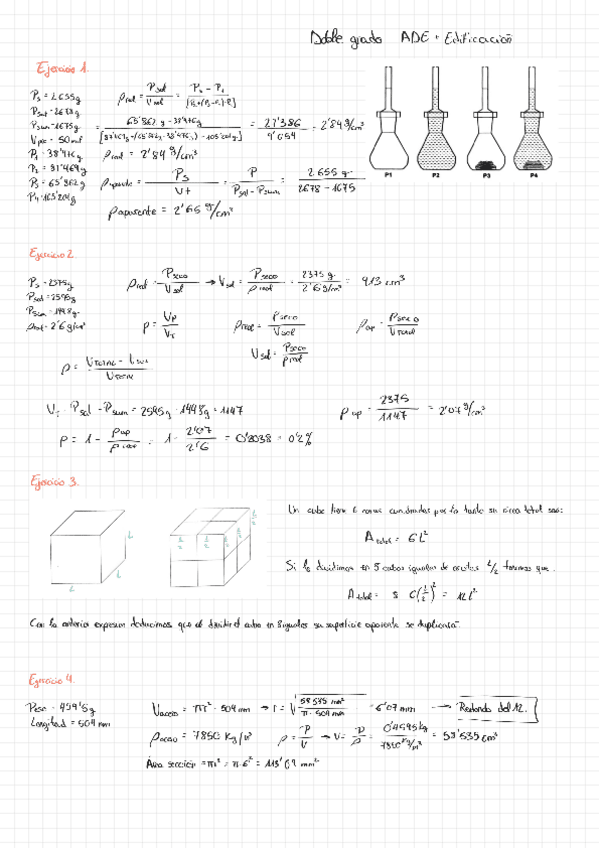 Doble grado ADE + Edificación
Ejercicio 1.
Ps = 2655g
Psat = 2678g
Psum = 1675g
Vpic = 50 ml
P1 = 38'476g
P2 = 87'469g
P3 = 65'862g
P4 = 105'201g
ρreal = Psol / Vsol = P3 - P1 / [P2+(P3-P1)-P4]
= 65'862 g - 38'476g = 27'386 / 9'654 = 2'84 g/cm³
ρreal = 2'84 g/cm³
ρaparente = Ps / Vt = P / Psat - Psum = 2655 g / 2678 - 1675
ρaparente = 2'65 g/cm³
P1 P2 P3 P4
Ejercicio 2
Ps = 2375g
Psat = 2595g
Psum = 1448g
ρreal = 2'6 g/cm³
ρreal = Pseco / Vsol → Vsol = Pseco / ρreal = 2375 g / 2'6 g/cm³ = 913 cm³
p = Vp / VT
ρreal = Pseco / Vsol
ρap = Pseco / Vtotal
Vsol = Pseco / ρreal
p = Vtotal - Vsol / Vtotal
VT = Psat - Psum = 2595g - 1448g = 1147
ρap = 2375 / 1147 = 2'07 g/cm³
p = 1 - ρap / ρreal = 1 - 2'07 / 2'6 = 0'2038 = 0'2%
Ejercicio 3.
L
L
L
L/2 L/2 L/2 L/2
Un cubo tiene 6 caras cuadradas por lo tanto su área total será:
Atotal = 6L²
Si lo dividimos en 8 cubos iguales de aristas L/2 tenemos que.
Atotal = 8 · 6(L/2)² = 12L²
Con la anterior expresión deducimos que al dividir el cubo en 8 iguales su superficie aparente se duplicará
Ejercicio 4.
Peso = 459'5g
Longitud = 504 mm
Vacero = πr² · 504 mm → r = √58 535 mm² / π · 504 mm = 6'07 mm → Redondo del 12.
ρacero = 7850 Kg/m³
ρ = P / V → V = P / ρ = 0'4595 kg / 7850 kg/m³ = 58'535 cm³
Área sección = πr² = π · 6² = 113'09 mm²